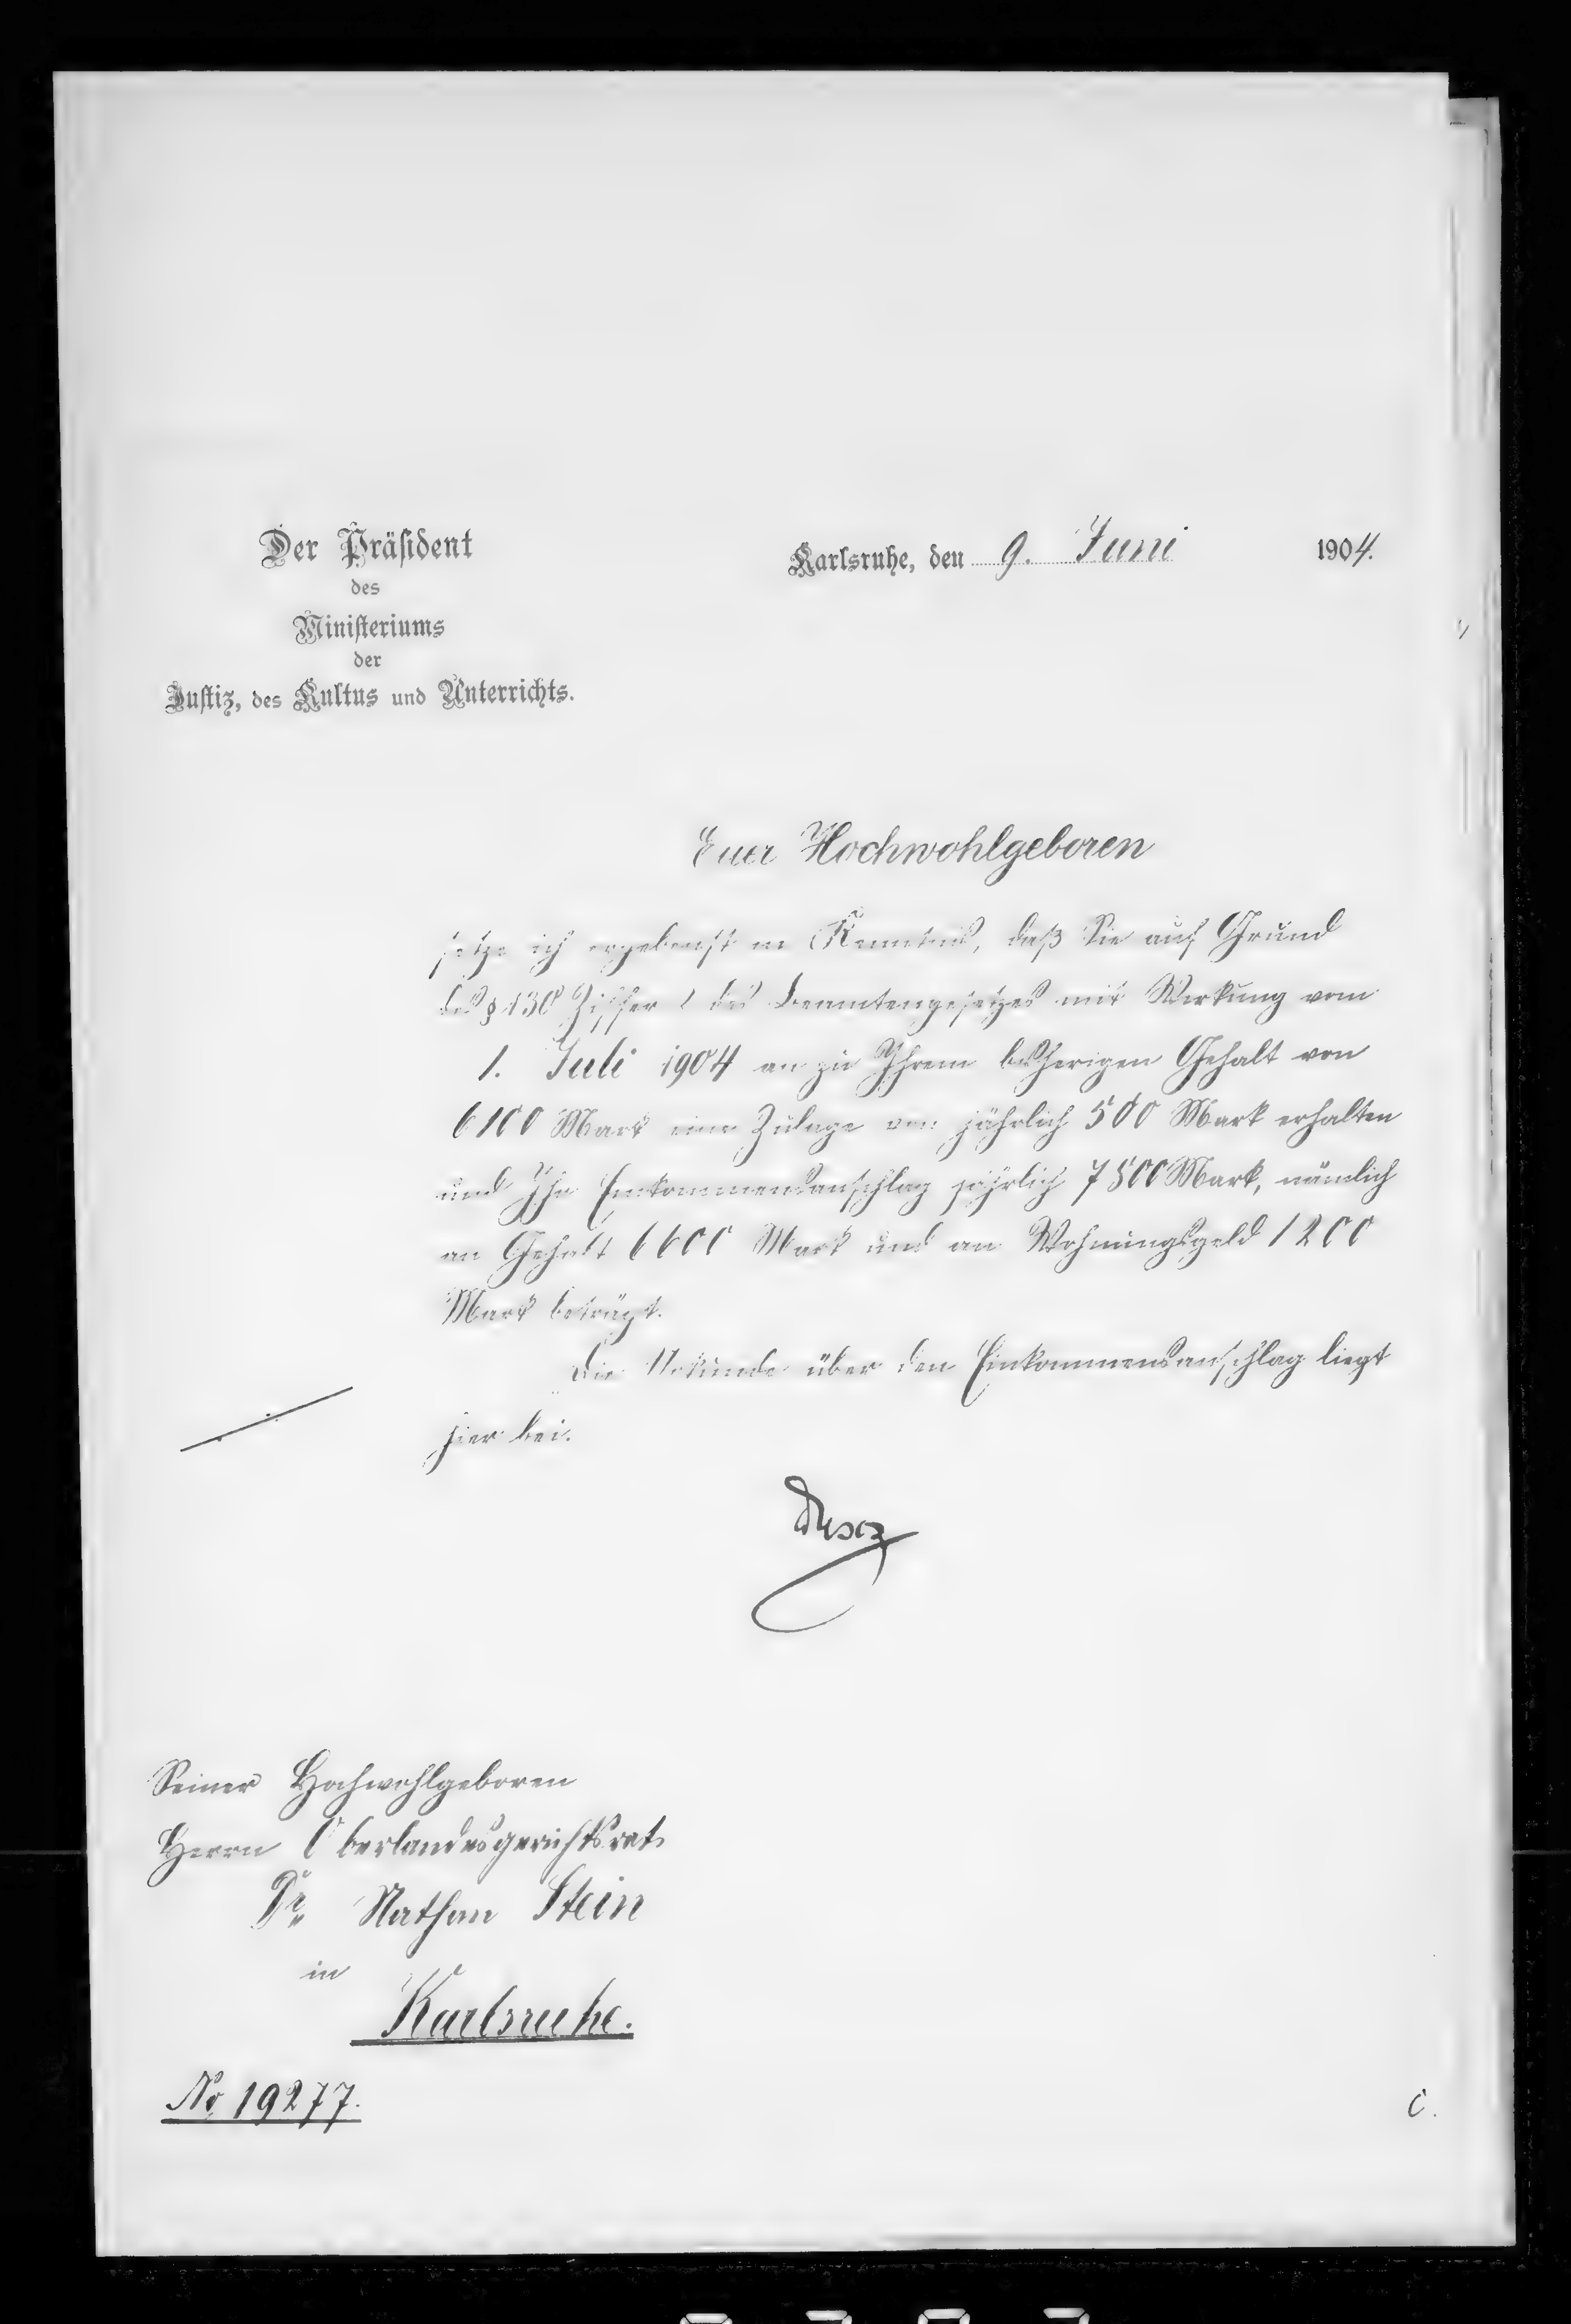 Der Präsident
des
Ministeriums
der
Justiz, des Kultus und Unterrichts.
Karlsruhe, den 9. Juni 1904.
Euer Hochwohlgeboren
setze ich ergebenst in Kenntnis, daß Sie auf Grund
des § 130 Ziffer des Beamtengesetzes mit Wirkung vom
1. Juli 1904 an zu Ihrem bisherigen Gehalt von
6100 Mark eine Zulage von jährlich 500 Mark erhalten
und Ihr Einkommensanschlag jährlich 7800 Mark, nämlich
an Gehalt 6600 Mark und an Wohnungsgeld 1200
Mark beträgt.
Die Urkunde über den Einkommensanschlag liegt
hier bei.
Seiner Hochwohlgeboren
Herrn Oberlandesgerichtsrat
Dr. Nathan Stein
in
Karlsruhe.
No 19277.
C.